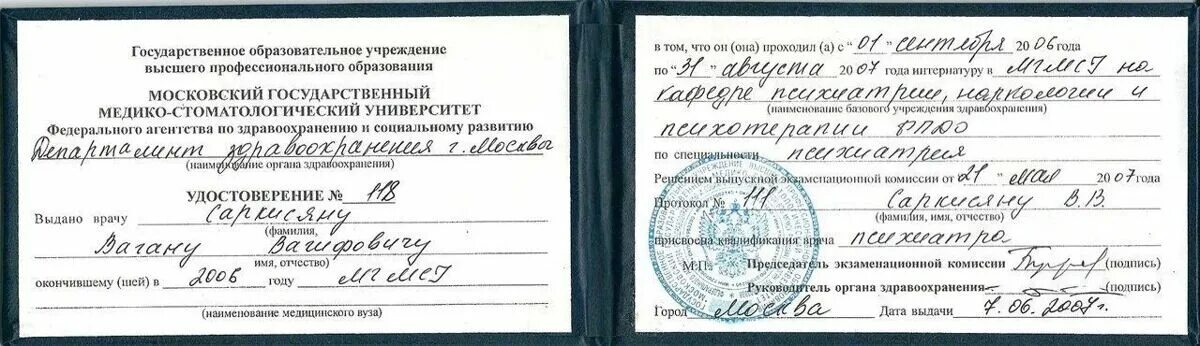 Государственное образовательное учреждение
высшего профессионального образования
МОСКОВСКИЙ ГОСУДАРСТВЕННЫЙ
МЕДИКО-СТОМАТОЛОГИЧЕСКИЙ УНИВЕРСИТЕТ
Федерального агентства по здравоохранению и социальному развитию
Департамент здравоохранения г. Москвы
(наименование органа здравоохранения)
УДОСТОВЕРЕНИЕ № 118
Выдано врачу Саркисяну
(фамилия,
Вагану Вагифовичу
имя, отчество)
окончившему (шей) в 2006 году МГМСУ
(наименование медицинского вуза)
в том, что он (она) проходил (а) с "01" сентября 2006 года
по "31" августа 2007 года интернатуру в МГМСУ на
кафедре психиатрии, наркологии и
(наименование базового учреждения здравоохранения)
психотерапии ФПДО
по специальности психиатрия
Решением выпускной экзаменационной комиссии от "21" мая 2007 года
Протокол № 111 Саркисяну В.В.
(фамилия, имя, отчество)
присвоена квалификация врача психиатра
М.П. Председатель экзаменационной комиссии (подпись)
Руководитель органа здравоохранения (подпись)
Город Москва Дата выдачи 7.06.2007г.